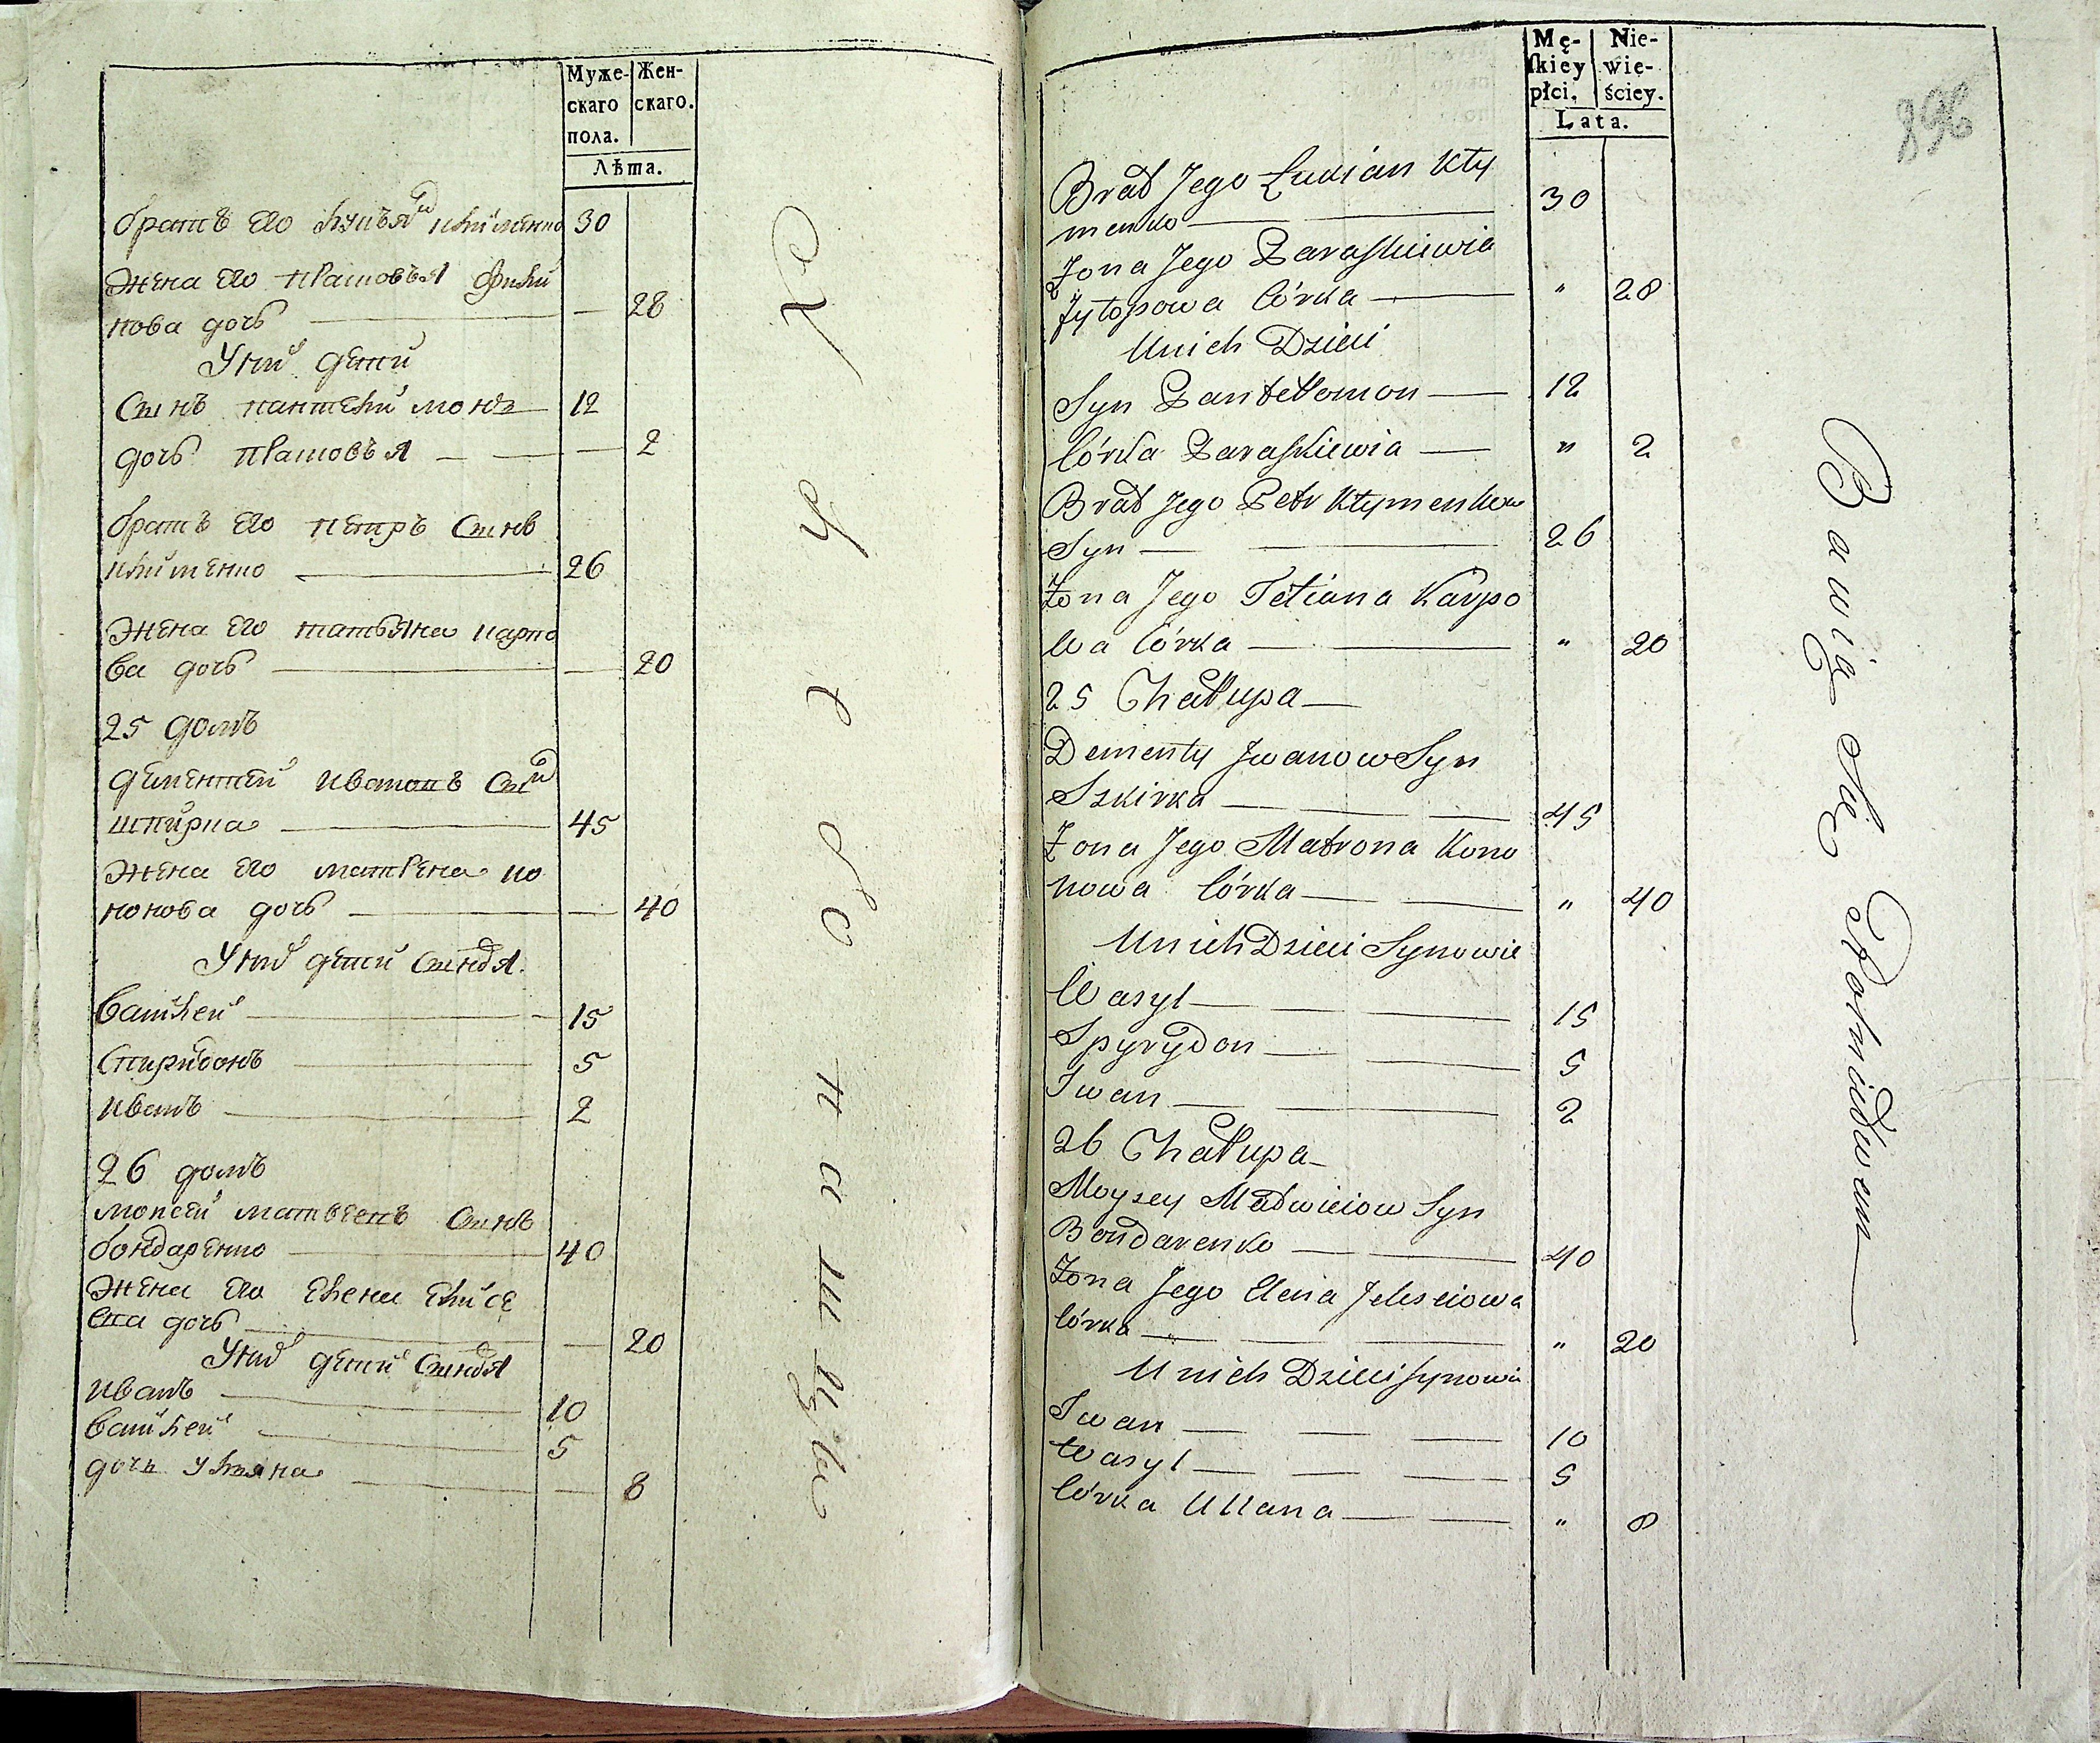 Муже-
скаго
пола.
Жен-
скаго.
Лѣта.
братъ его лукьян клименко 30
жена его прасковья
нова дочь — 28
У них дети
Сынъ пантелимонъ 12
дочь прасковья — 2
братъ его петръ Сынъ
клименко 26
жена его татьяна карпо
ва дочь — 20
25 домъ
дементей ивановъ Сын
шкирка 45
жена его матрена ко
нонова дочь — 40
У них дети Сыновья
василей 15
Спиридонъ 5
иванъ 2
26 домъ
моисей матвеевъ Сынъ
бондаренко 40
жена его елена елисе
ева дочь — 20
У них дети Сыновья
иванъ 10
василей 5
дочь ульяна — 8
Mę-
skiey
płci.
Nie-
wie-
ściey.
Lata.
896
Brat Jego Łukian Kły
menko 30
Żona Jego Paraskiewia
córka " 28
U nich Dzieci
Syn Pantełomon 12
Córka Paraskiewia " 2
Brat Jego Petr Kłymenkow
Syn 26
Żona Jego Tetiana Karpo
wa Córka " 20
25 Chałupa
Dementy Jwanow Syn
Szkirka 45
Żona Jego Matrona Kono
nowa Córka " 40
U nich Dzieci Synowie
Wasyl 15
Spyrydon 5
Iwan 2
26 Chałupa
Moyzey Matwieiow Syn
Bondarenko 40
Żona Jego Elena Jeleseiowa
Córka " 20
U nich Dzieci Synowie
Iwan 10
Wasyl 5
Córka Uliana " 8
Bawią się Rolnictwem